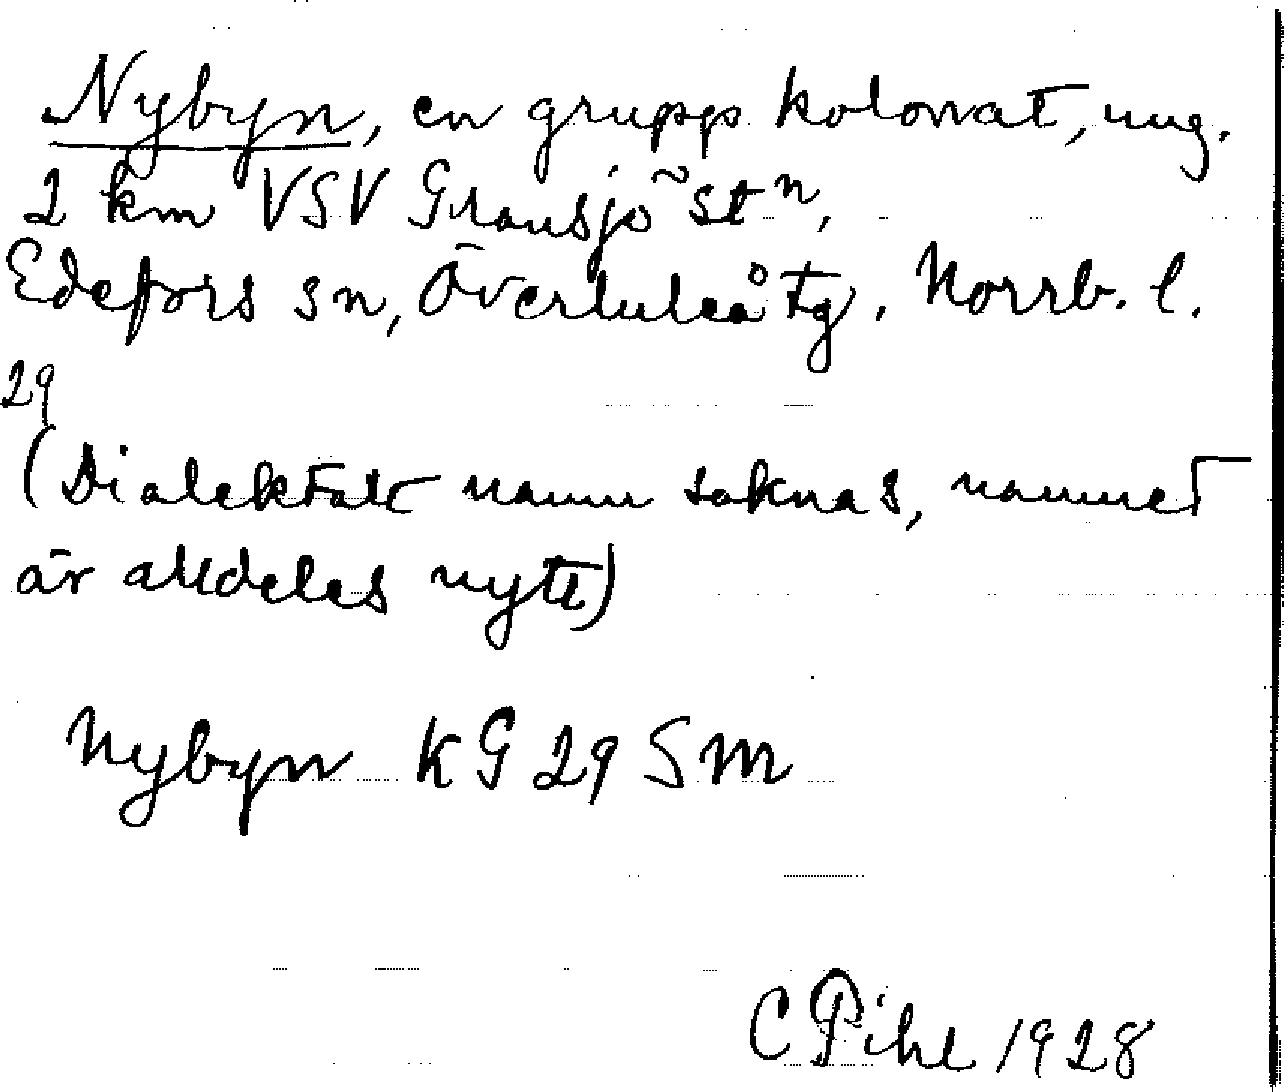 Nybyn, en grupp kolonat, ung.
2 km VSV Gransjö stn,
Edefors sn, Överluleå tg. Norrb. l.
29
(Dialektalt namn saknas, namnet
är alldeles nytt)
Nybyn KG 29 SM
C Pihl 1928